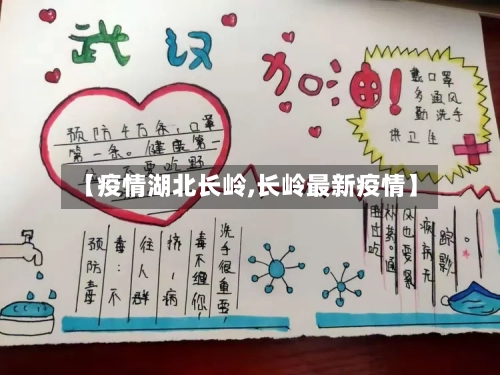 武汉
加油!
戴口罩
多通风
勤洗手
讲卫生
预防千万条,口罩
第一条。健康第一
要吃野
【疫情湖北长岭,长岭最新疫情】
洗手很重要,
毒不缠你
挤,病
往人群
毒:不
预防毒
踪影
病病无
风也要紧
朴药。通
围过吃